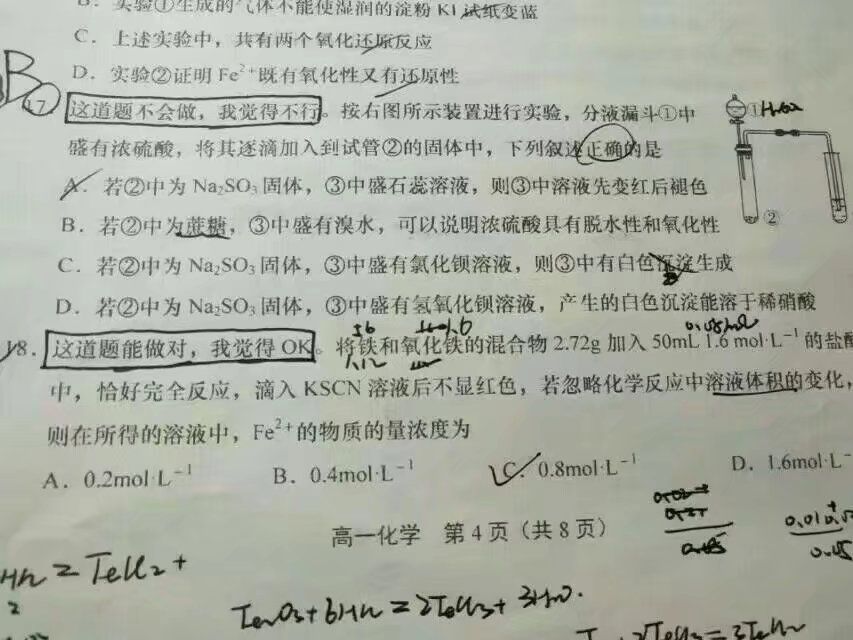 B. 实验①生成的气体不能使湿润的淀粉 KI 试纸变蓝
C. 上述实验中，共有两个氧化还原反应
D. 实验②证明 Fe²⁺既有氧化性又有还原性
B
17 这道题不会做，我觉得不行。按右图所示装置进行实验，分液漏斗①中
①
盛有浓硫酸，将其逐滴加入到试管②的固体中，下列叙述正确的是
A. 若②中为 Na₂SO₃ 固体，③中盛石蕊溶液，则③中溶液先变红后褪色
②
B. 若②中为蔗糖，③中盛有溴水，可以说明浓硫酸具有脱水性和氧化性
C. 若②中为 Na₂SO₃ 固体，③中盛有氯化钡溶液，则③中有白色沉淀生成
D. 若②中为 Na₂SO₃ 固体，③中盛有氢氧化钡溶液，产生的白色沉淀能溶于稀硝酸
56 160
18. 这道题能做对，我觉得 OK。将铁和氧化铁的混合物 2.72g 加入 50mL 1.6 mol·L⁻¹ 的盐酸
中，恰好完全反应，滴入 KSCN 溶液后不显红色，若忽略化学反应中溶液体积的变化，
则在所得的溶液中，Fe²⁺的物质的量浓度为
A. 0.2mol·L⁻¹ B. 0.4mol·L⁻¹ C. 0.8mol·L⁻¹ D. 1.6mol·L⁻
高一化学 第 4 页（共 8 页）
0.05